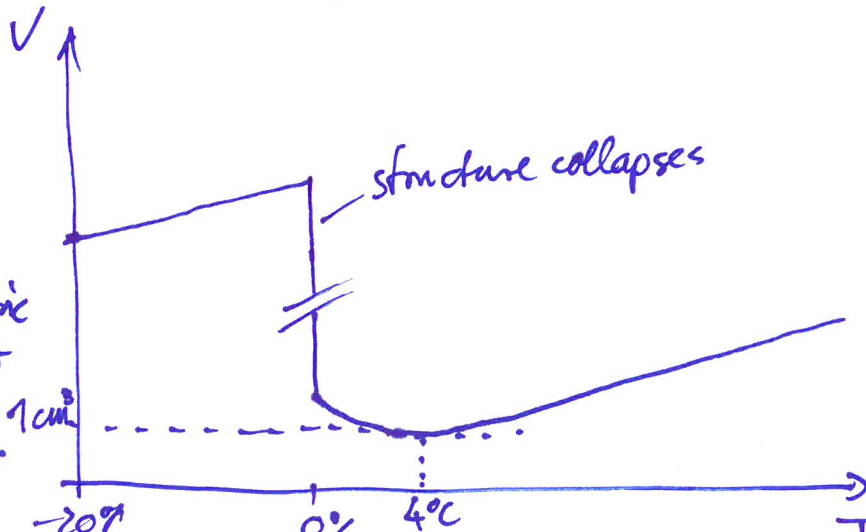 V
structure collapses
1 cm³
-20°C 0°C 4°C